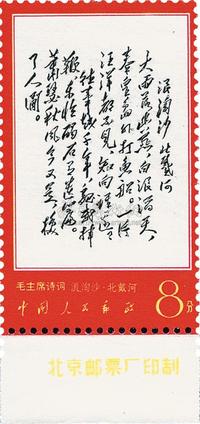 浪淘沙 北戴河
大雨落幽燕,白浪滔天,
秦皇岛外打鱼船。一片
汪洋都不见,知向谁边
往事越千年,魏武挥
鞭,东临碣石有遗篇。
萧瑟秋风今又是,换
了人间。
毛主席诗词 浪淘沙·北戴河
中国人民邮政 8分
北京邮票厂印制